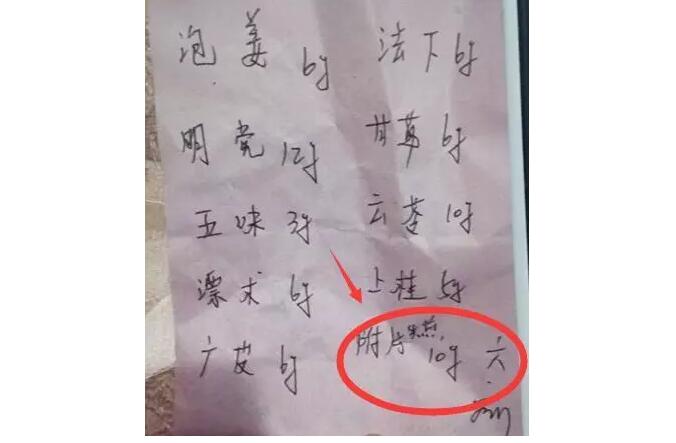 泡姜 6g 法下 6g
明党 12g 甘草 6g
五味 3g 云苓 10g
漂术 6g 上桂 5g
广皮 6g 附片 先煎 10g 六